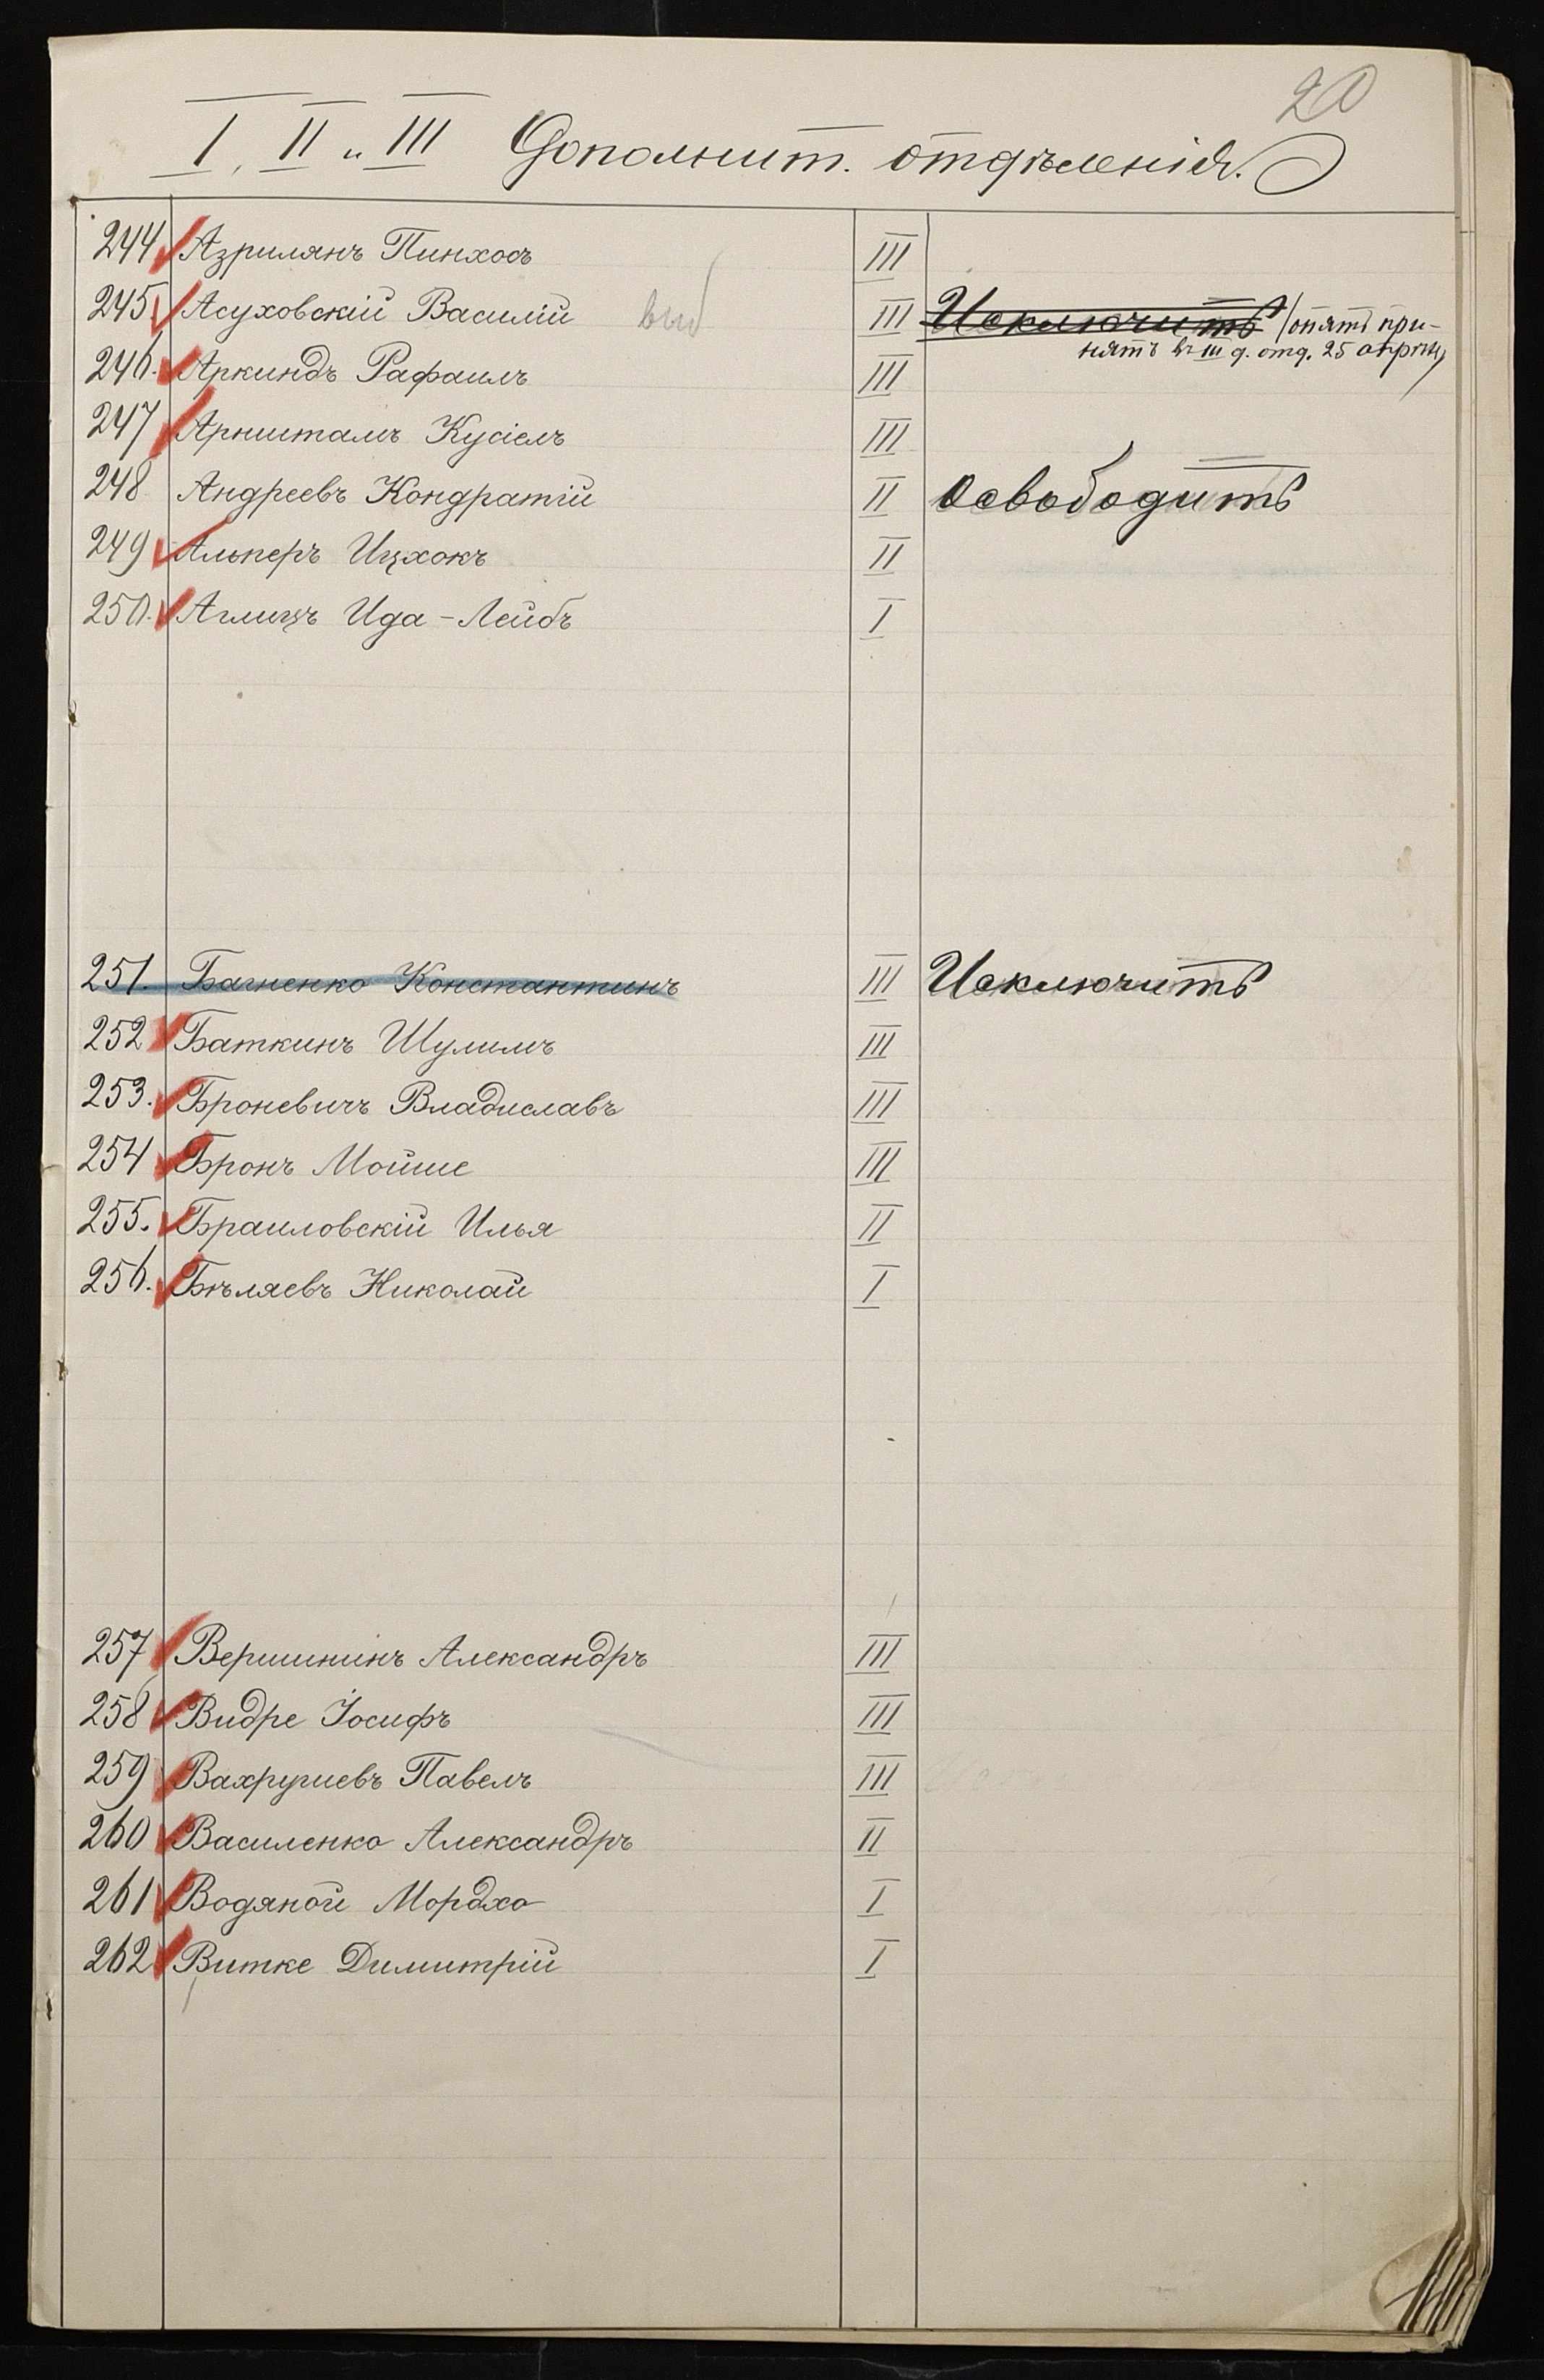 20
I, II и III Дополнит. отдѣленія.
244 Азрилянъ Пинхосъ III
245 Асуховскій Василій выб III Исключить (опять при-
нятъ въ III д. отд. 25 апрѣля)
246. Аркиндъ Рафаилъ III
247 Арнштамъ Кусіелъ III
248 Андреевъ Кондратій II Освободить
249 Альперъ Ицхокъ II
250. Аглицъ Ида-Лейбъ I
251. Багненко Константинъ III Исключить
252 Баткинъ Шулимъ III
253. Броневичъ Владиславъ III
254 Бронъ Мойше III
255. Браиловскій Илья II
256. Бѣляевъ Николай I
257 Вершининъ Александръ III
258 Видре Іосифъ III
259 Вахрушевъ Павелъ III
260 Василенко Александръ II
261 Водяной Мордхо I
262 Витке Димитрій I